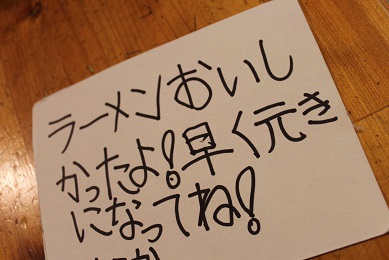 ラーメンおいし
かったよ!早く元き
になってね!